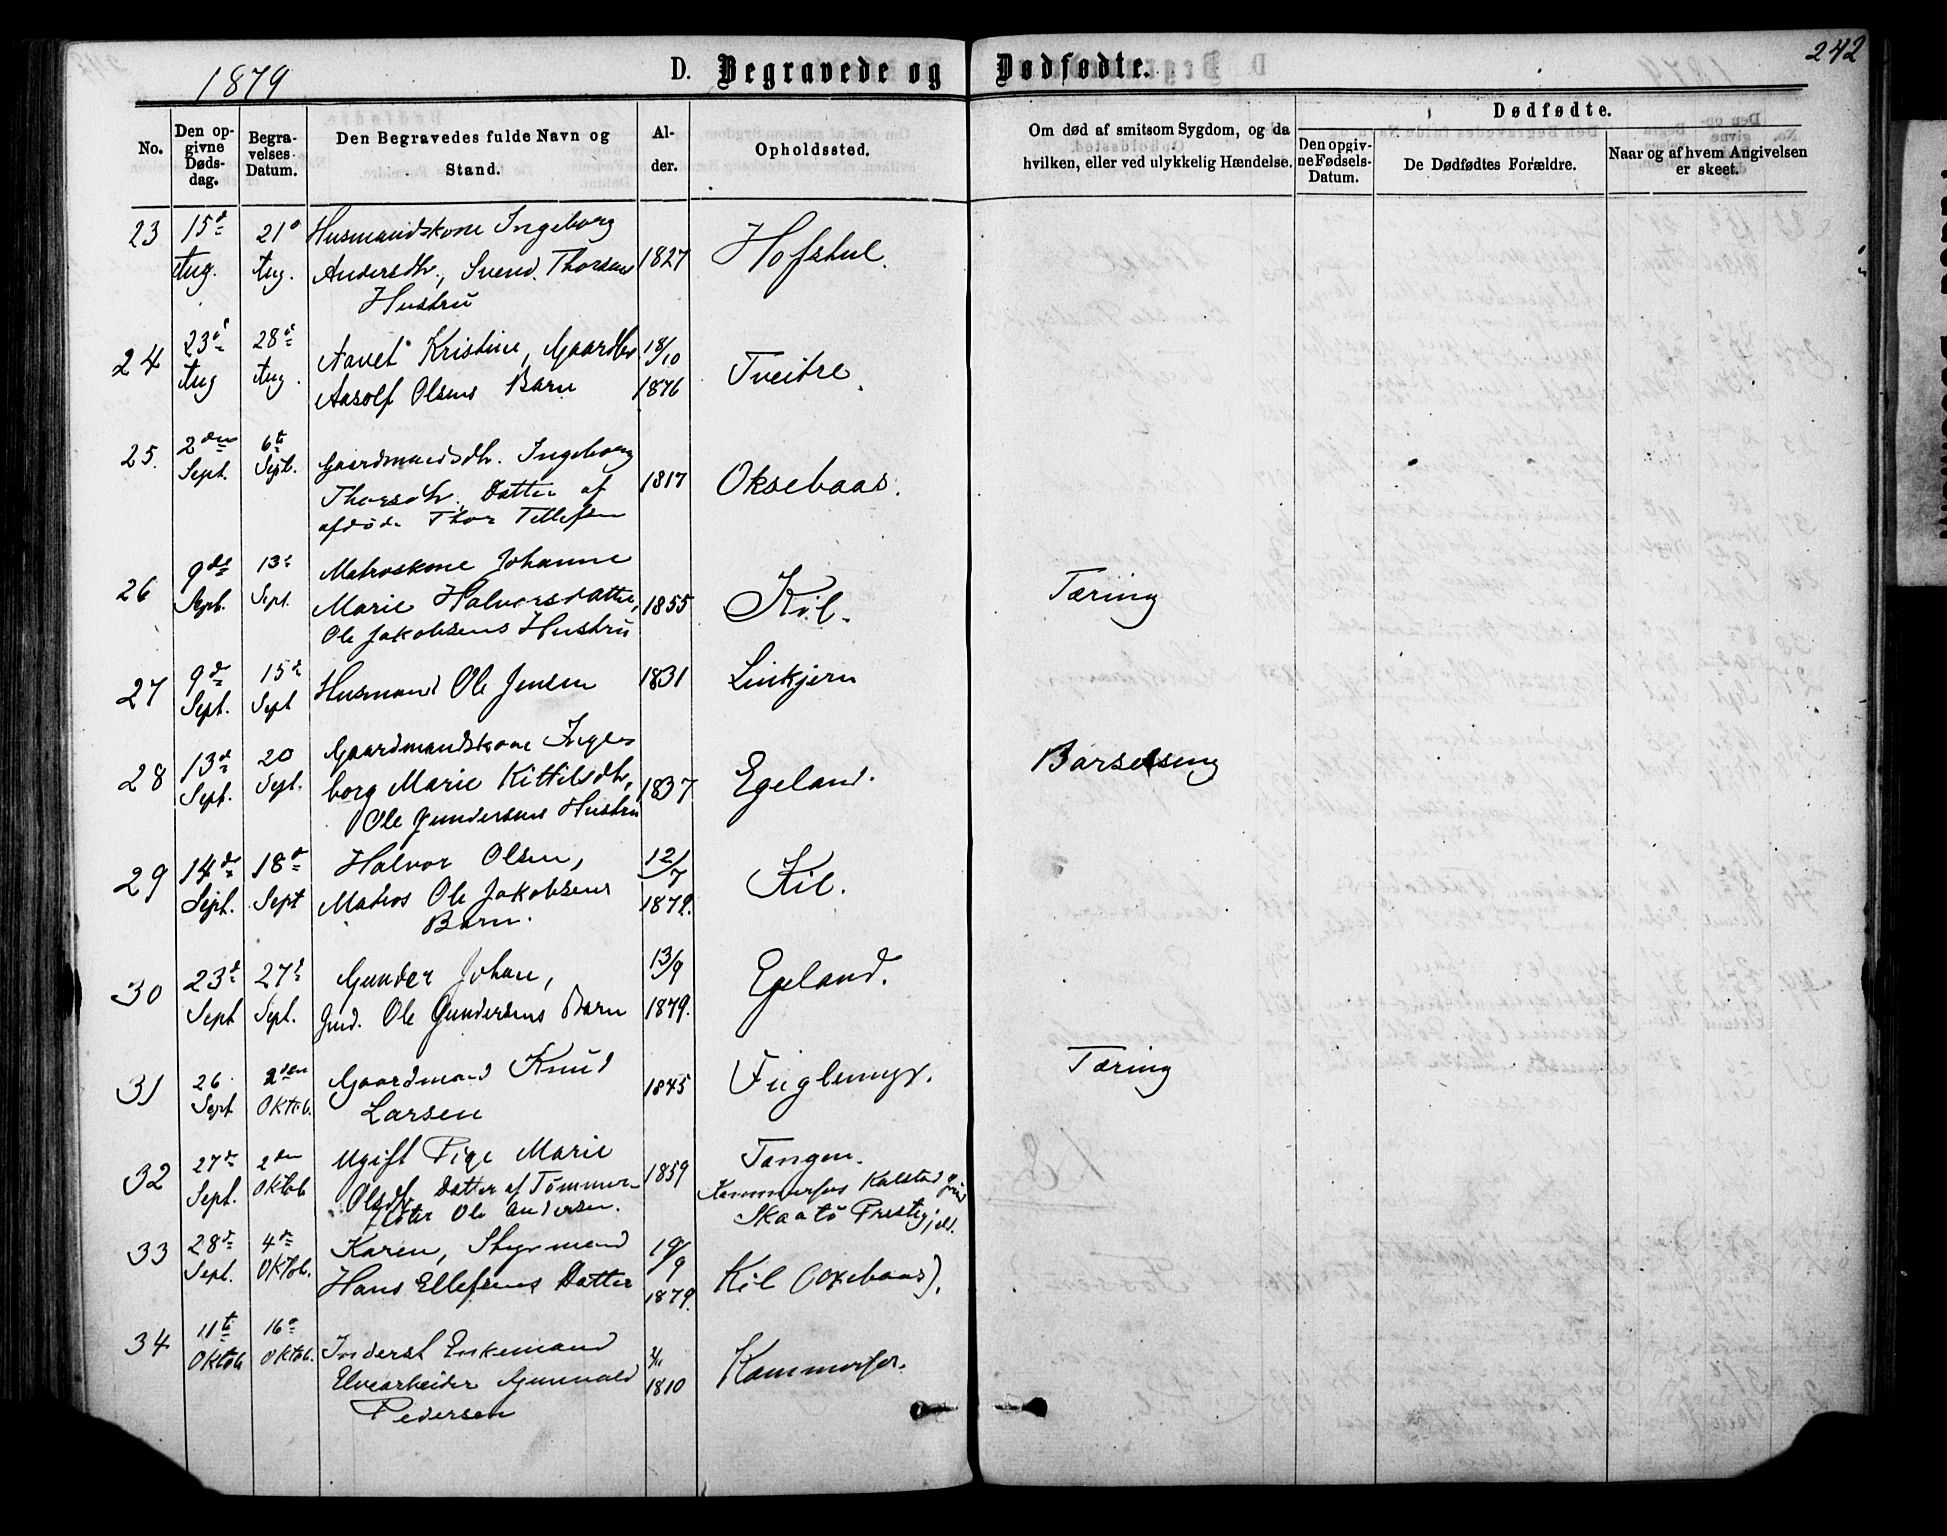 1879
D. Begravede og Dødfødte.
242
No.
Den op-
givne
Døds-
dag.
Begra-
velses-
Datum.
Den Begravedes fulde Navn og
Stand.
Al-
der.
Opholdssted.
Om død af smitsom Sygdom, og da
hvilken, eller ved ulykkelig Hændelse.
Dødfødte.
Den opgiv-
ne Fødsels-
Datum.
De Dødfødtes Forældre.
Naar og af hvem Angivelsen
er skeet.
23 15d Aug. 21d Aug. Husmandskone Ingeborg
Andersdtr., Svend Thorsens 1827 Hofstul.
Hustru
24 23d Aug 28d Aug. Aavet Kristine, Gaardbr 18/10
Aasolf Olsens Barn 1876 Tveitre.
25. 2den Sept. 6te Sept. Gaardmandsdtr. Ingeborg
Thorsdtr. Datter af 1817 Oksebaas.
afdøde Thor Tellefsen
26 9de Sept. 13de Sept. Matroskone Johanne
Marie Halvorsdatter, 1855 Kil. Tæring
Ole Jakobsens Hustru
27 9de Sept. 15de Sept Husmand Ole Jensen 1831 Linkjern
28 13de Sept. 20 Sept. Gaardmandskone Inge-
borg Marie Kittilsdtr, 1837 Egeland. Barselseng
Ole Gundersens Hustru
29 14de Sept. 18de Sept Halvor Olsen, 12/7
Matros Ole Jakobsens 1879. Kil.
Barn.
30 23d Sept 27d Sept. Gunder Johan, 13/9
Gmd. Ole Gundersens Barn 1879. Egeland.
31 26 Sept 2den Oktob. Gaardmand Knud
Larsen 1845 Fuglemyr. Tæring
32 27de Sept. 2den Oktob Ugift Pige Marie Tangen.
Olsdtr Datter af Tømmer- 1859 Kammerfos Kalstad
fløter Ole Andersen. Skaatø Prestegjeld.
33 28de Sept. 4de Oktob. Karen, Styrmand 19/9
Hans Ellefsens Datter 1879. Kil (Oxebaas).
34 11te Oktob 16de Oktob. Inderst Enkemand
Elvearbeider Gunvald 1810 Kammerfos.
Pedersen